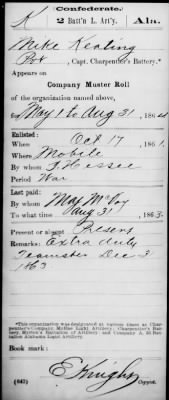 Confederate.
K 2 Batt'n L. Art'y. Ala.
Mike Keating
Pvt, Capt. Charpentier's Battery.*
Appears on
Company Muster Roll
of the organization named above,
for May 1 to Aug 31, 1864
Enlisted:
When Oct 17, 1861.
Where Mobile
By whom J Hessee
Period War
Last paid:
By whom Maj McVoy
To what time Aug 31, 1863.
Present or absent Present
Remarks: Extra duty
Teamster Dec 3
1863
*This organization was designated at various times as Charpentier's Company
Battalion of Artillery and Company
Battalion Alabama Light Artillery.
Book mark:
E Knight
(642) Copyist.